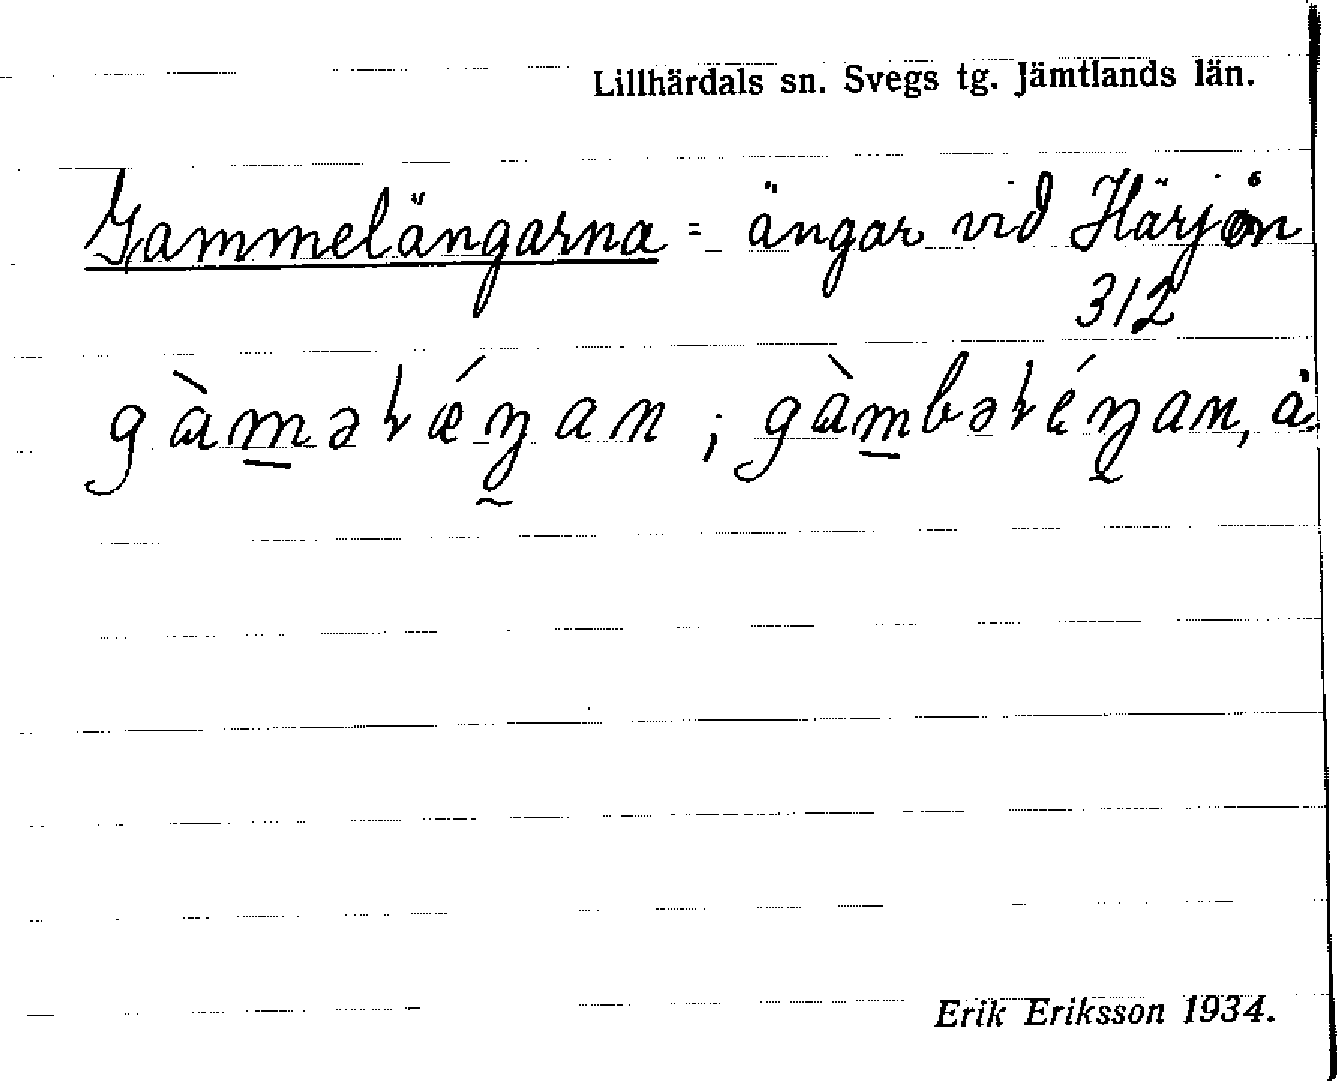 Lillhärdals sn. Svegs tg. Jämtlands län.
Gammelängarna = ängar vid Härjån
312
gàmələ́ŋan ; gàmbələ́ŋan, å.
Erik Eriksson 1934.